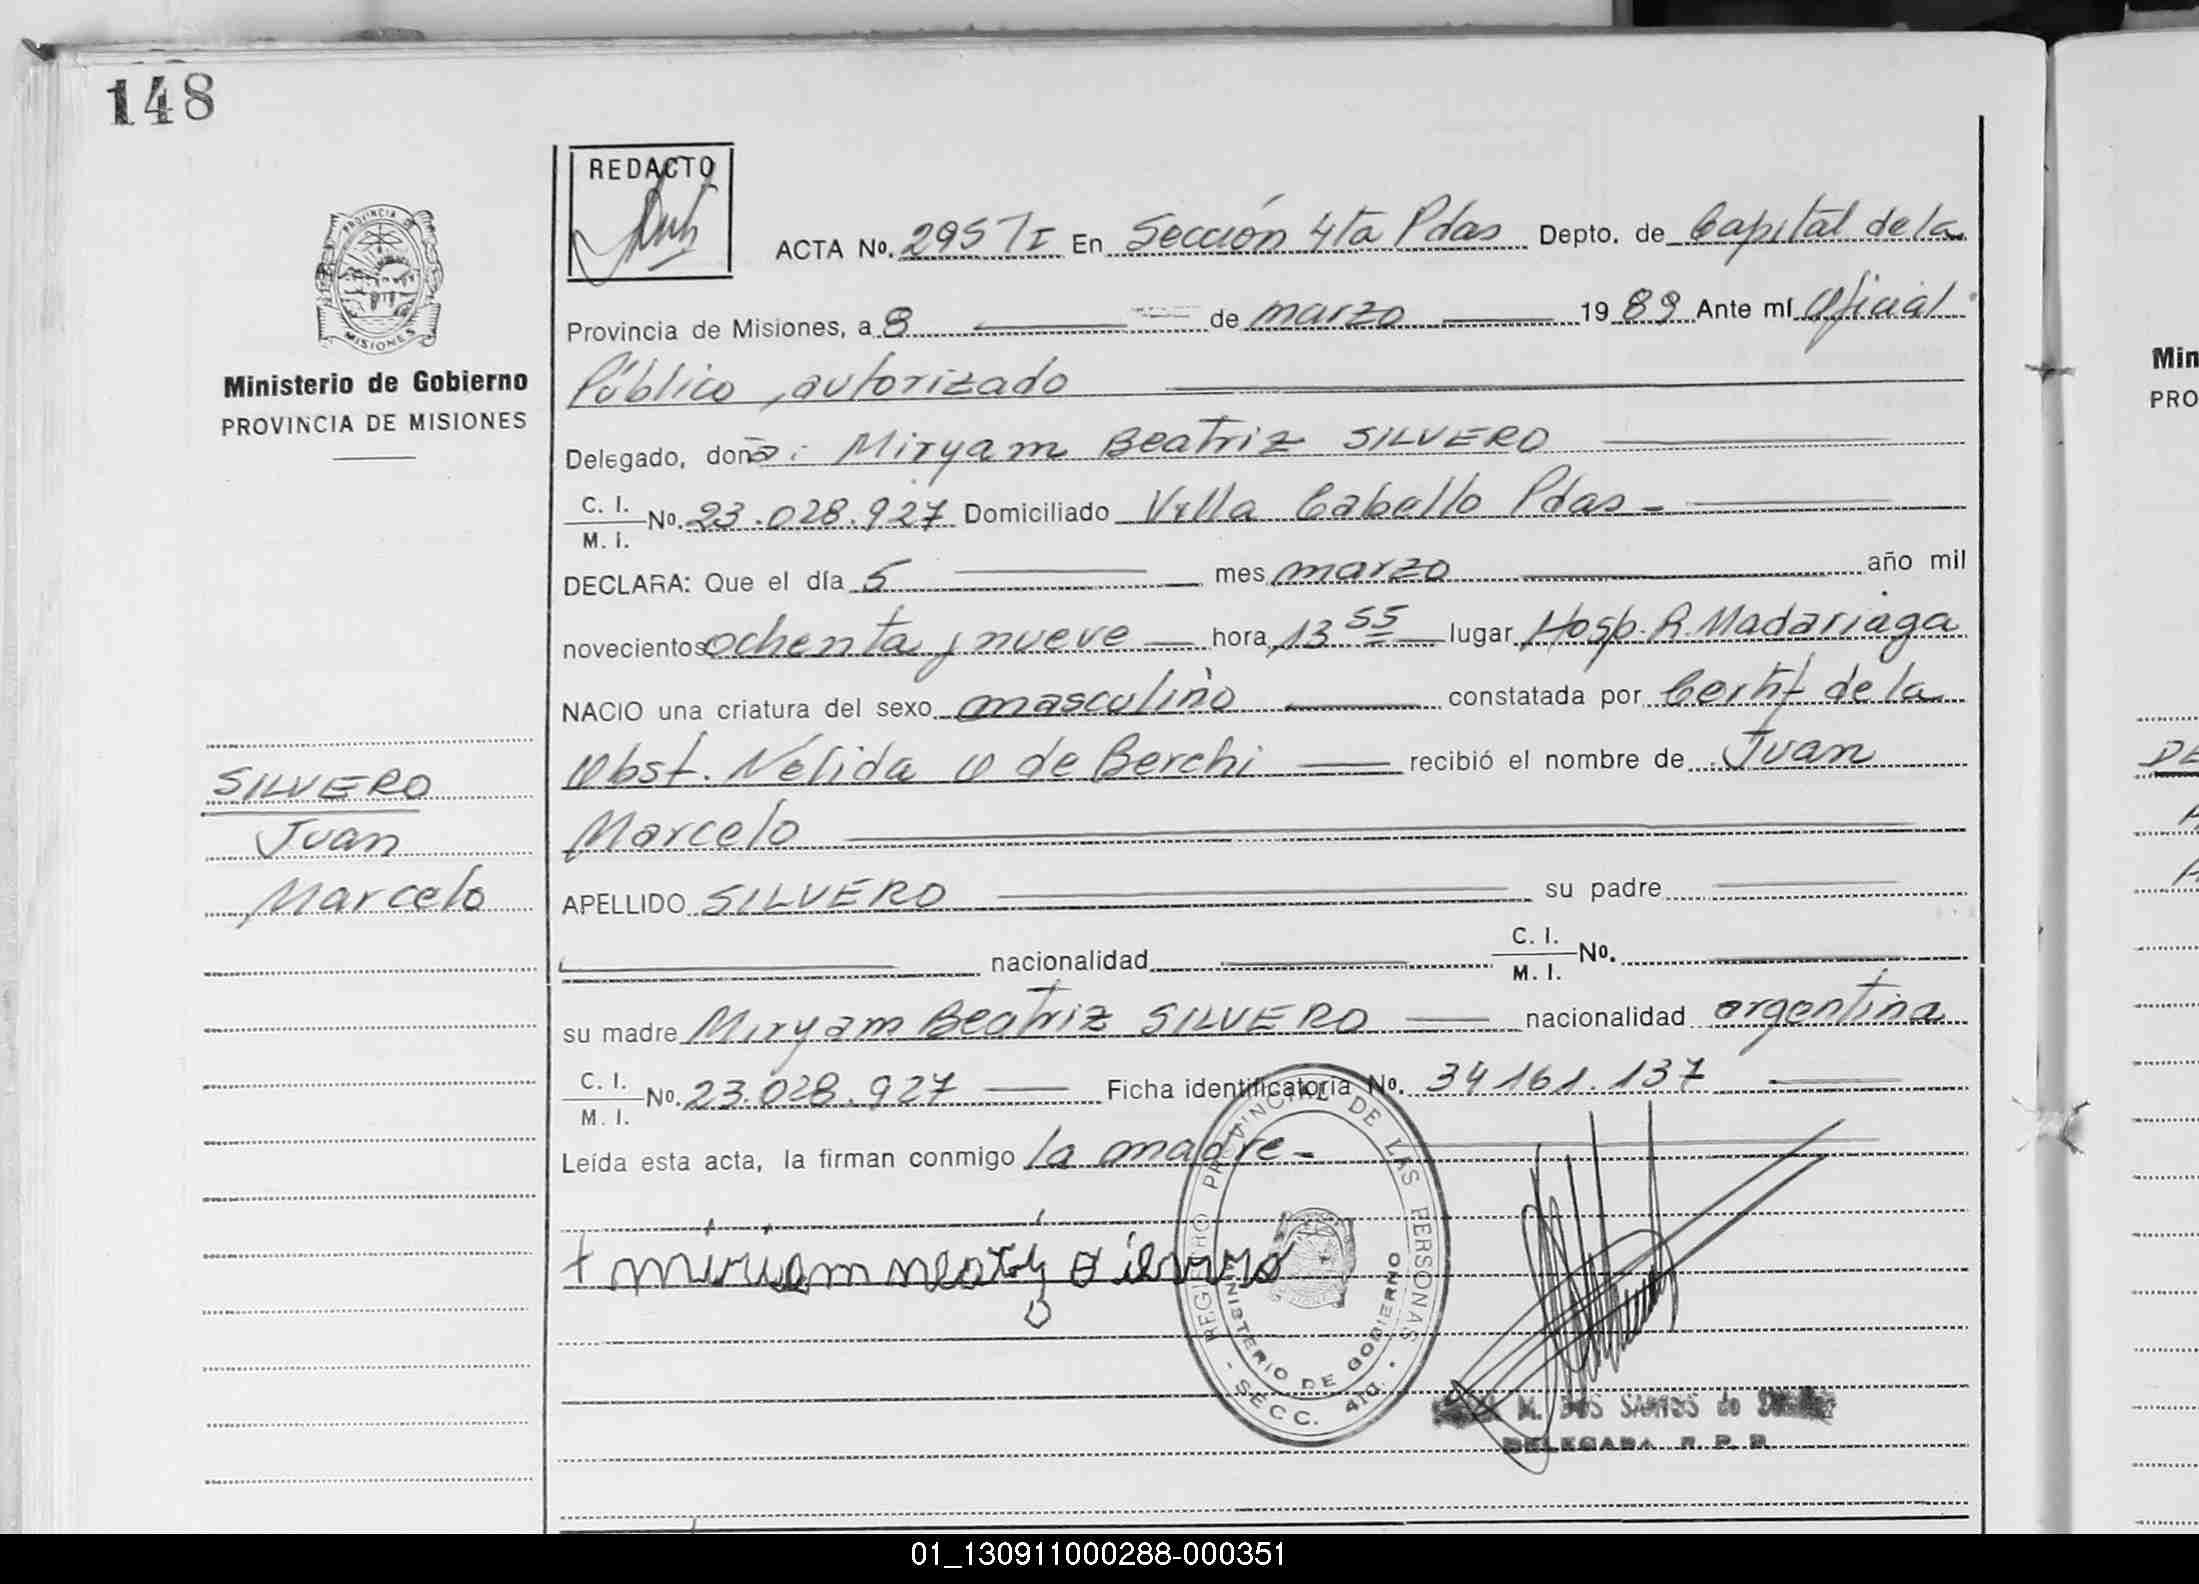 148
REDACTO
PROVINCIA DE
MISIONES
Ministerio de Gobierno
PROVINCIA DE MISIONES
ACTA No. 295 T I En Sección 4ta Pdas Depto. de Capital de la
Provincia de Misiones, a 8 de marzo 19 89 Ante mí Oficial
Público, autorizado
Delegado, doña: Miryam Beatriz SILVERO
C. I.
M. I. No. 23.028.927 Domiciliado Villa Cabello Pdas -
DECLARA: Que el día 5 mes marzo año mil
novecientos ochenta y nueve hora 13 55 lugar Hosp. R. Madariaga
NACIO una criatura del sexo masculino constatada por Certif de la
Obst. Nélida O de Berchi recibió el nombre de Juan
Marcelo
SILVERO
Juan
Marcelo
APELLIDO SILVERO su padre
nacionalidad C. I.
M. I. No.
su madre Miryam Beatriz SILVERO nacionalidad argentina
C. I.
M. I. No. 23.028.927 Ficha identificatoria No. 34161.137
Leída esta acta, la firman conmigo la madre -
REGISTRO PROVINCIAL DE LAS PERSONAS
MINISTERIO DE GOBIERNO
- SECC. 4ta. -
M. DOS SANTOS de
DELEGADA R. P. P.
Min
PRO
DE
01_130911000288-000351